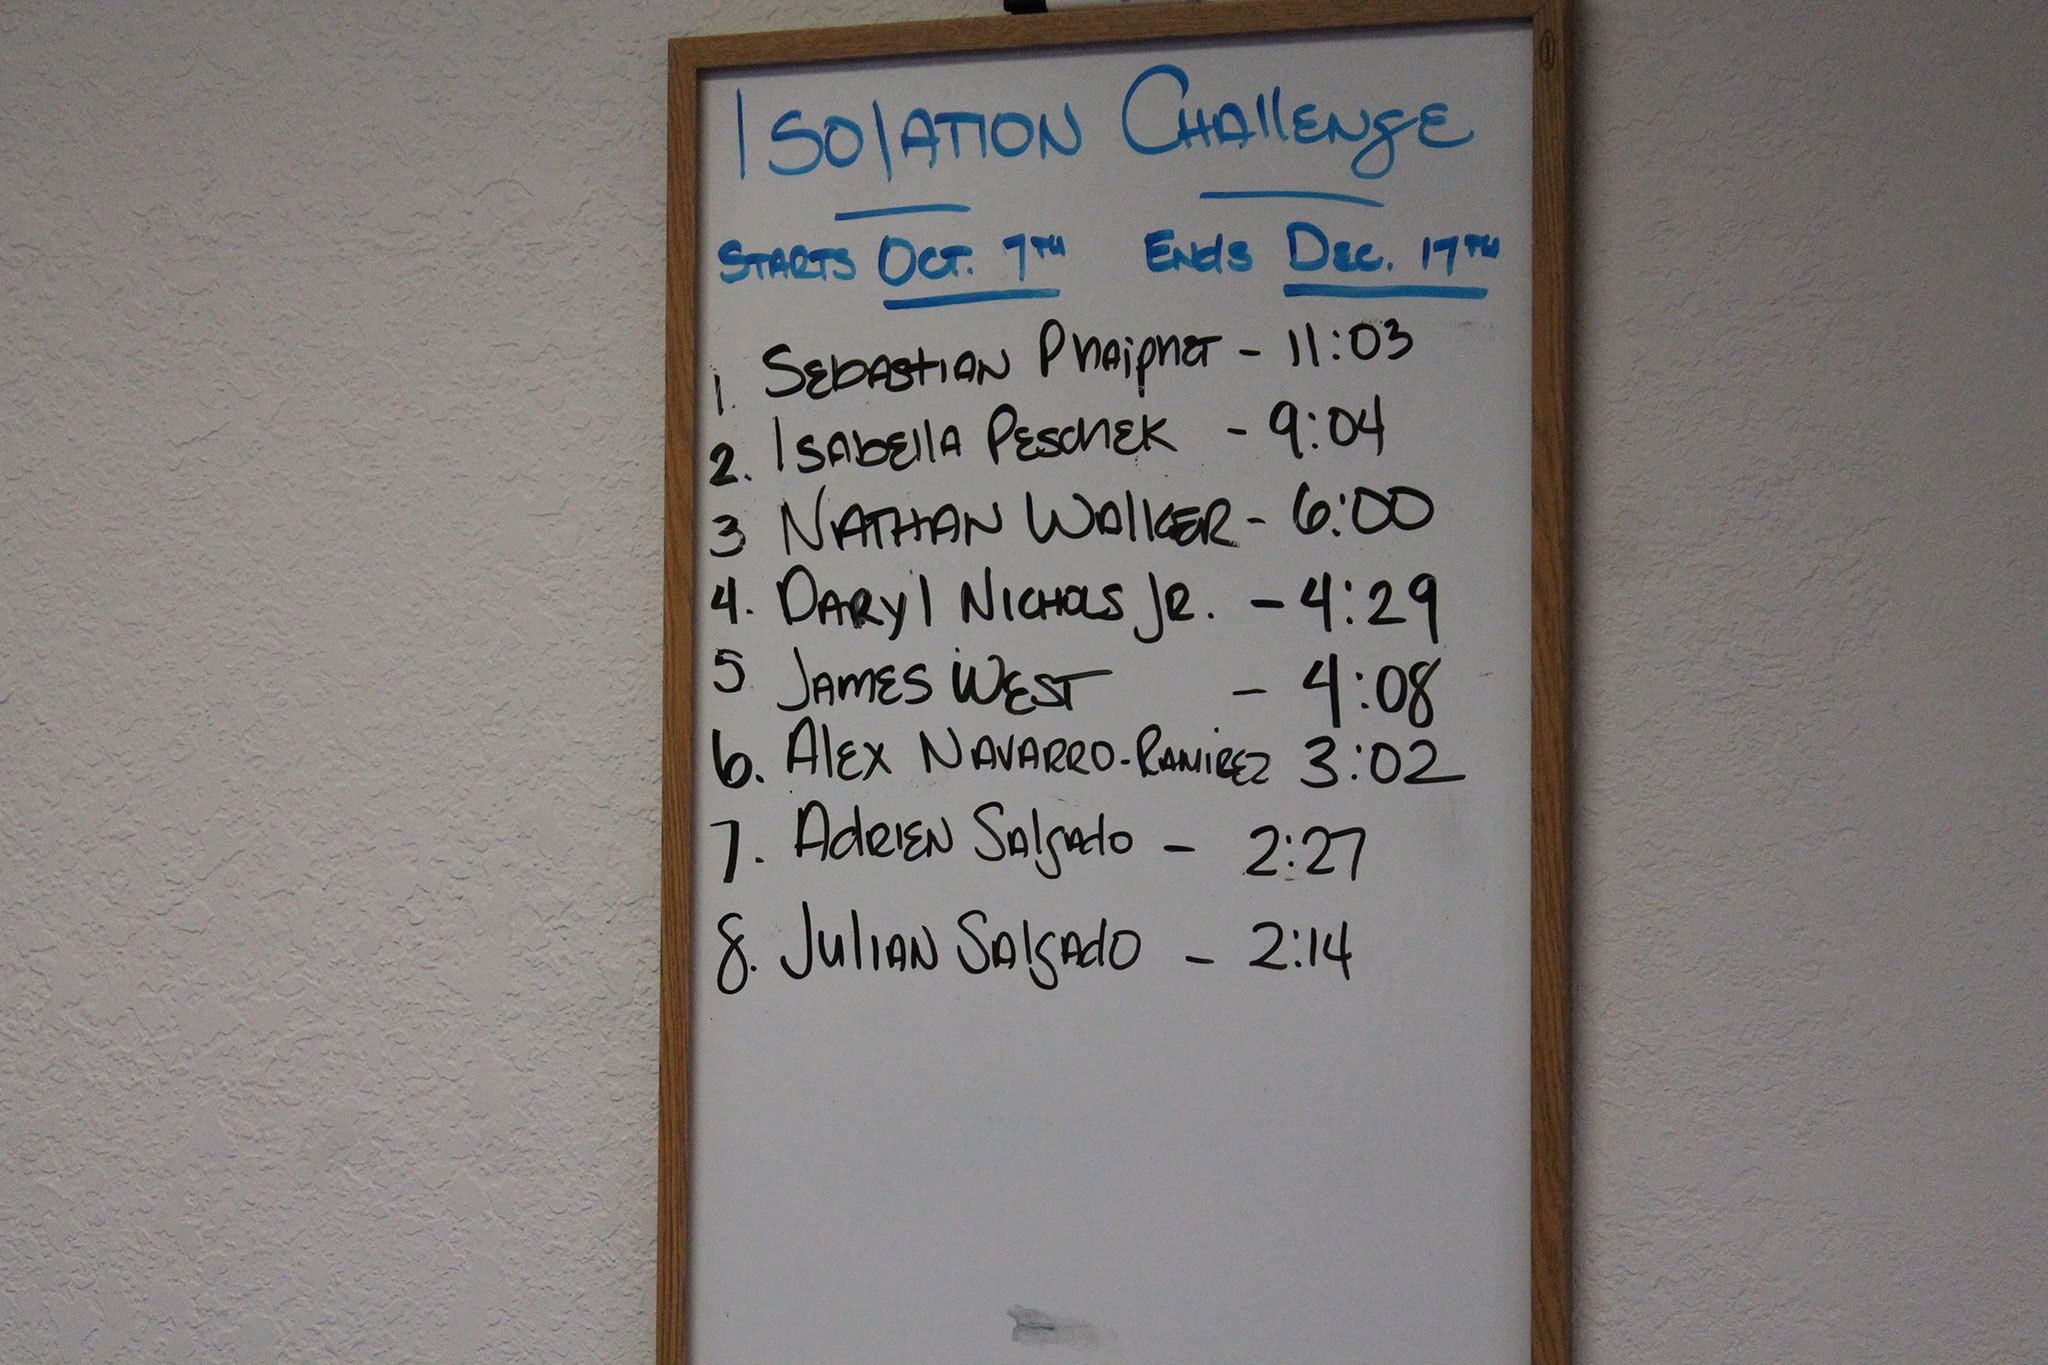 Isolation Challenge
Starts Oct. 7th Ends Dec. 17th
1. Sebastian Phaiphet - 11:03
2. Isabella Peschek - 9:04
3 Nathan Walker - 6:00
4. Daryl Nichols Jr. - 4:29
5 James West - 4:08
6. Alex Navarro-Ramirez 3:02
7. Adrien Salgado - 2:27
8. Julian Salgado - 2:14